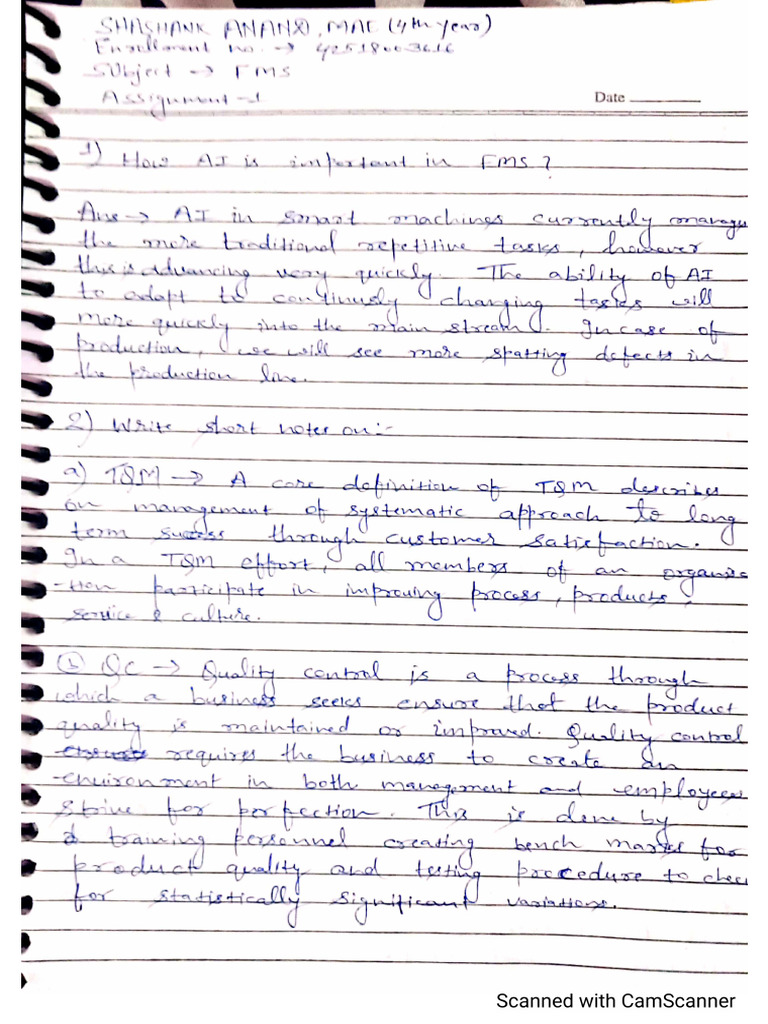 SHASHANK ANAND, MAE (4th year)
Enrollment no. → 42518003616
Subject → FMS
Assignment-1
Date
1) How AI is important in FMS?
Ans → AI in smart machines currently manage
the more traditional repetitive tasks, however
this is advancing very quickly. The ability of AI
to adapt to continusly changing tasks will
more quickly into the main stream. In case of
production, we will see more spatting defects in
the production line.
2) Write short notes on:-
a) TQM → A core definition of TQM describes
on management of systematic approach to long
term success through customer satisfaction.
In a TQM effort, all members of an organiza
-tion participate in improving process, products,
service & culture.
b QC → Quality control is a process through
which a business seeks ensure that the product
quality is maintained or improved. Quality control
requires the business to create an
environment in both management and employees
strive for perfection. This is done by
training personnel creating bench marks for
product quality and testing procedure to chec
for statistically significant variations.
Scanned with CamScanner